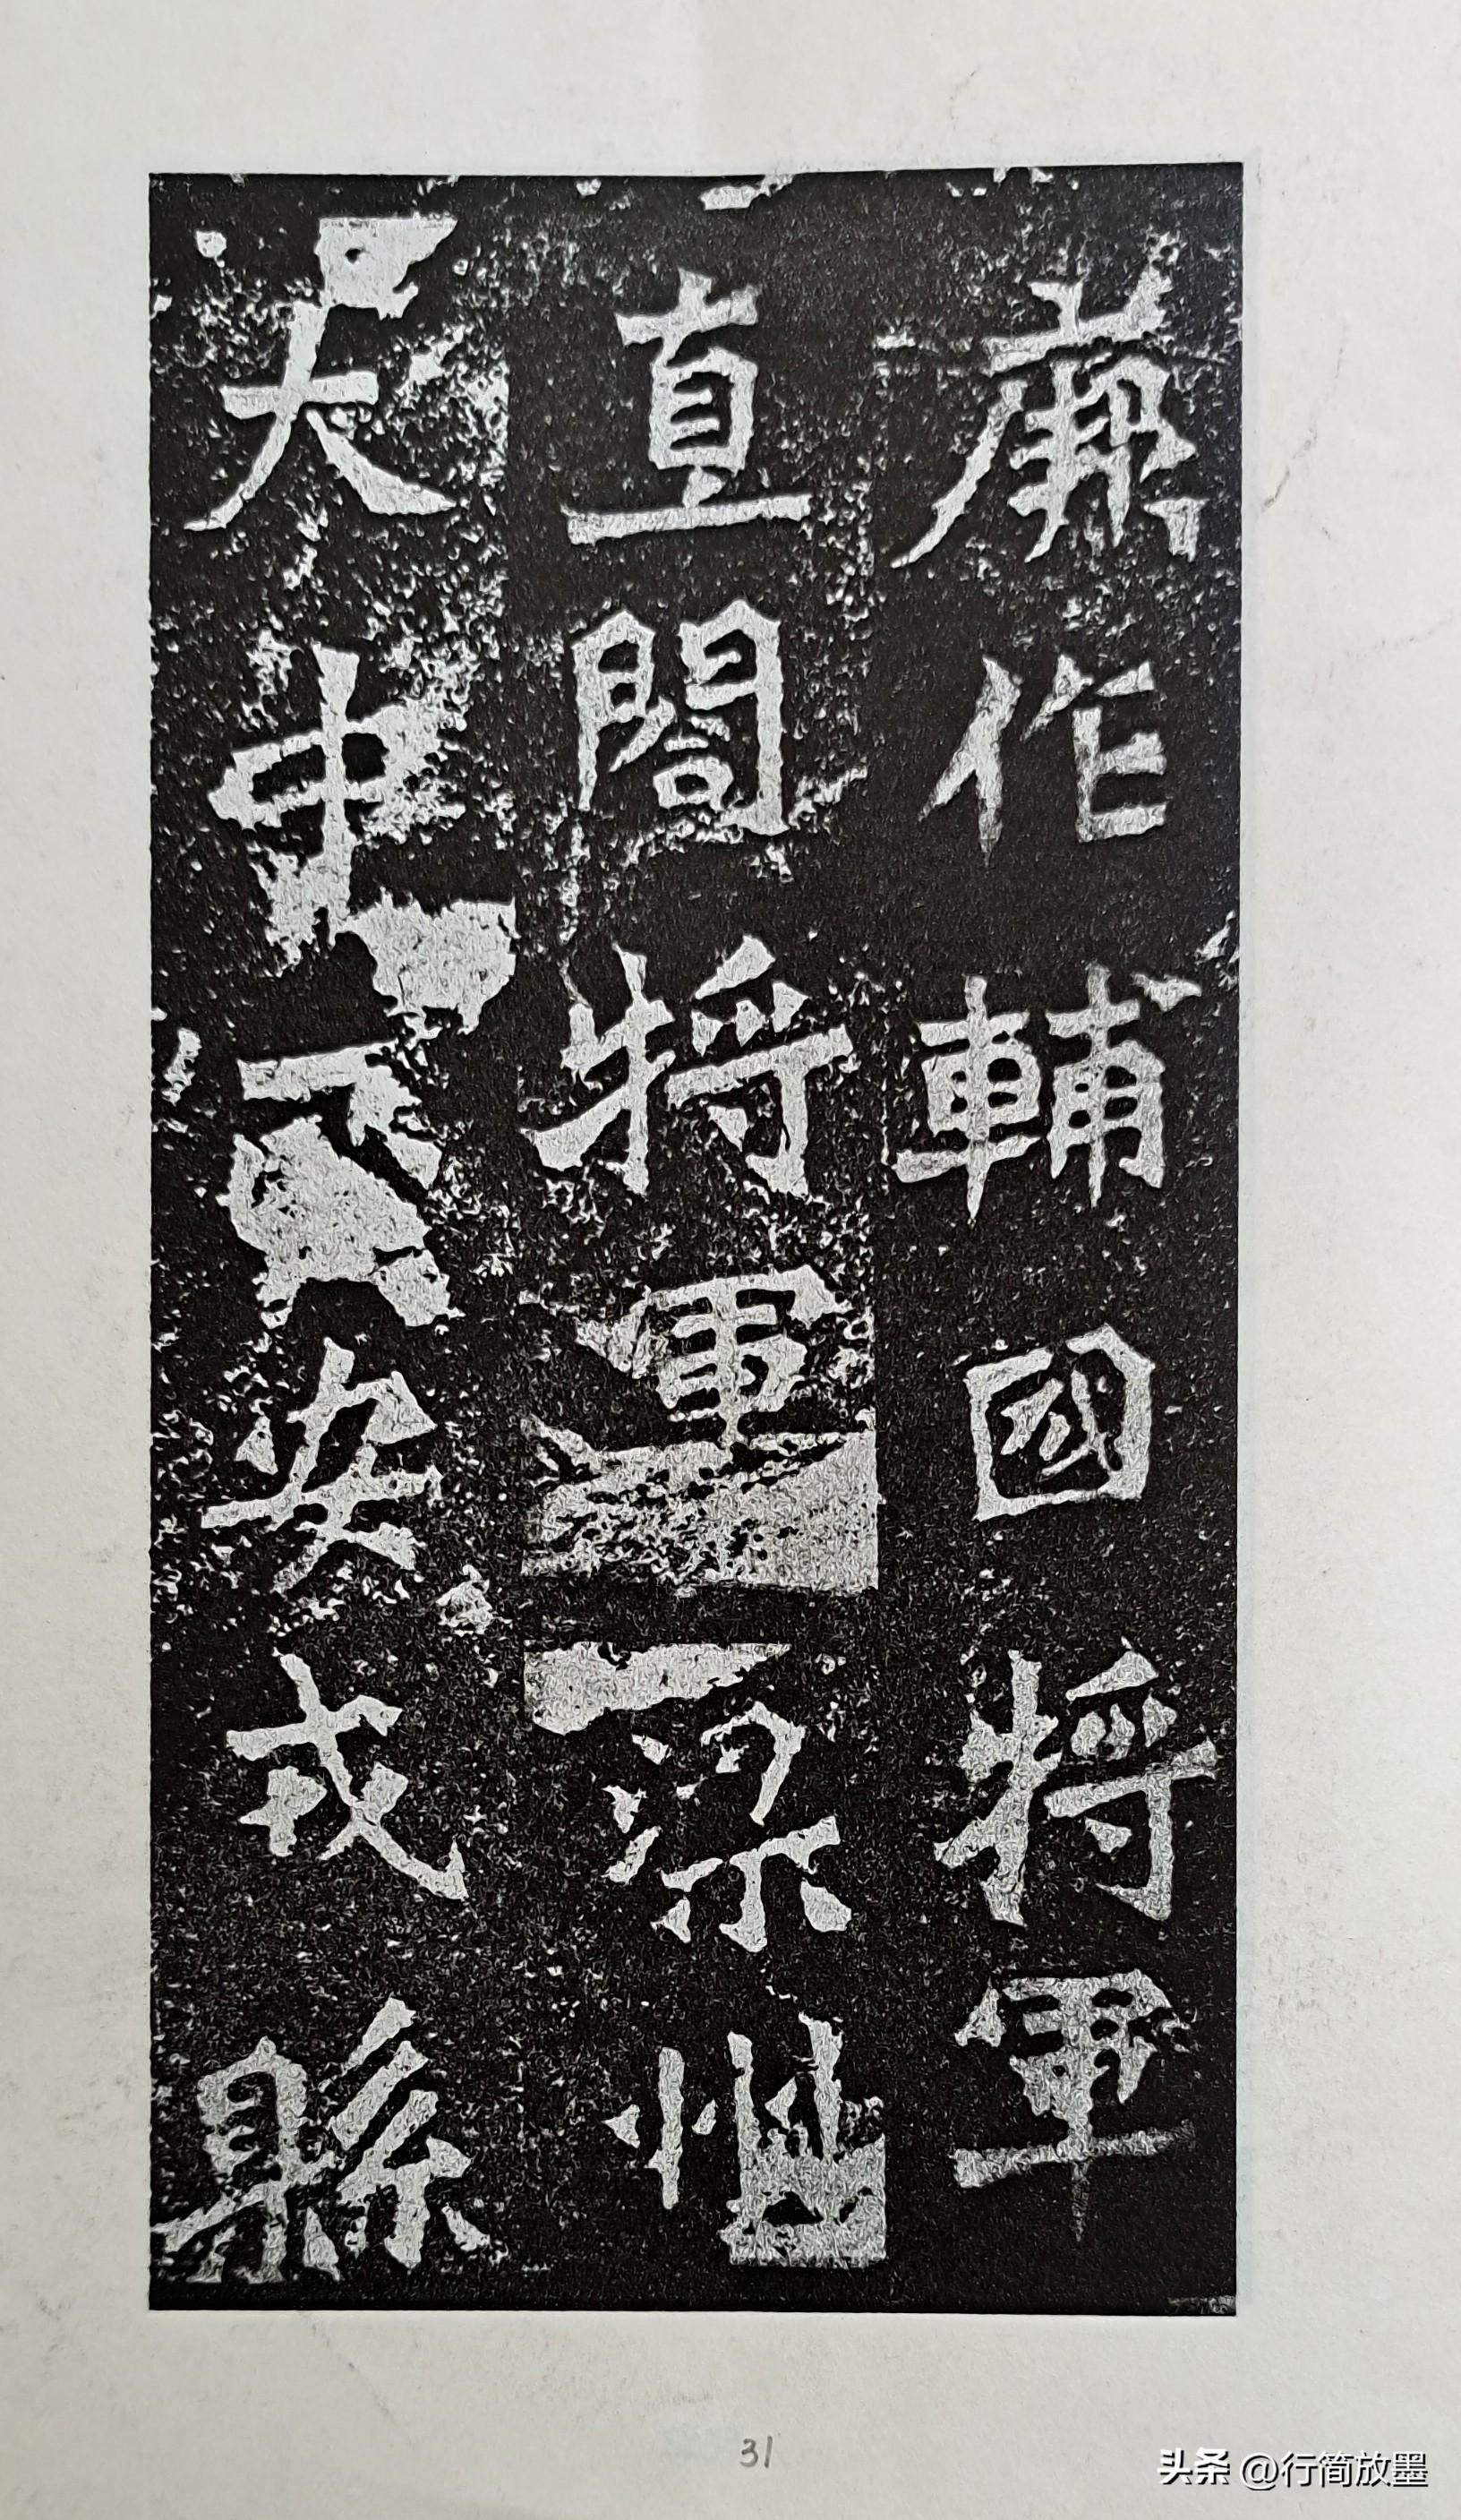 廉作輔國將軍
直閤將軍梁州
大中正安戎縣
31
头条 @行简放墨